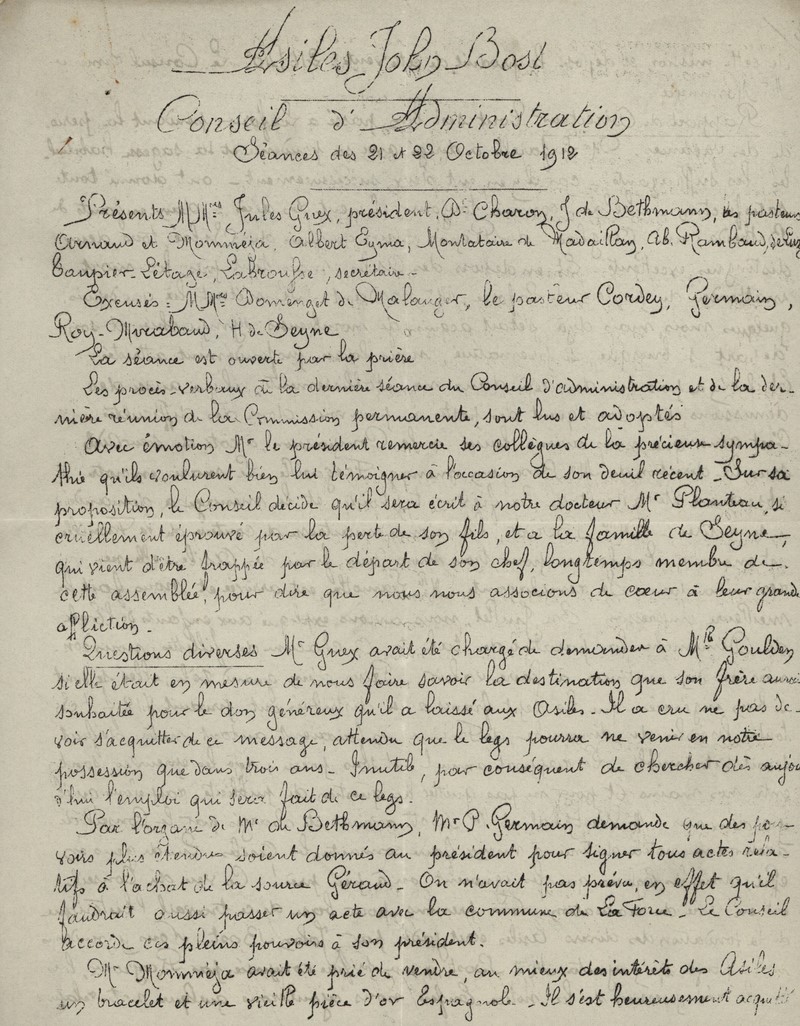 Asiles John Bost
Conseil d'Administration
Séances des 21 et 22 Octobre 1912
Présents MMrs Jules Guex, président, Dr Charon, J de Bethmann, les pasteurs
Arnaud et Momméja, Albert Eyma, Montataire de Madaillan, Ab. Rambaud, de Luze
Taupier-Létage, Labrousse, secrétaire -
Excusés : MMrs Domenget de Malauger, le pasteur Cordey, Germain,
Roy, Mirabaud, H de Seyne
La séance est ouverte par la prière
Les procès-verbaux de la dernière séance du Conseil d'administration et de la der-
nière réunion de la Commission permanente, sont lus et adoptés
Avec émotion Mr le président remercie ses collègues de la précieuse sympa-
thie qu'ils voulurent bien lui témoigner à l'occasion de son deuil récent - Sur sa
proposition, le Conseil décide qu'il sera écrit à notre docteur Mr Planteau, si
cruellement éprouvé par la perte de son fils, et a la famille de Seyne,
qui vient d'être frappée par le départ de son chef, longtemps membre de
cette assemblée, pour dire que nous nous associons de cœur à leur grande
affliction -
Questions diverses Mr Guex avait été chargé de demander à Mlle Goulden
si elle était en mesure de nous faire savoir la destination que son frère aurait
souhaitée pour le don généreux qu'il a laissé aux Asiles - Il a cru ne pas de-
voir s'acquitter de ce message, attendu que le legs pourra ne venir en notre
possession que dans trois ans - Inutile, par conséquent de chercher dès aujour
d'hui l'emploi qui sera fait de ce legs.
Par l'organe de Mr de Bethmann, Mr P. Germain demande que des pou-
voirs plus étendus soient donnés au président pour signer tous actes rela-
tifs à l'achat de la source Géraud - On n'avait pas prévu, en effet qu'il
faudrait aussi passer un acte avec la commune de La Force - Le Conseil
accorde ces pleins pouvoirs à son président.
Mr Momméja avait été prié de vendre, au mieux des intérêts des Asiles
un bracelet et une vieille pièce d'or Espagnole - Il s'est heureusement acquitté